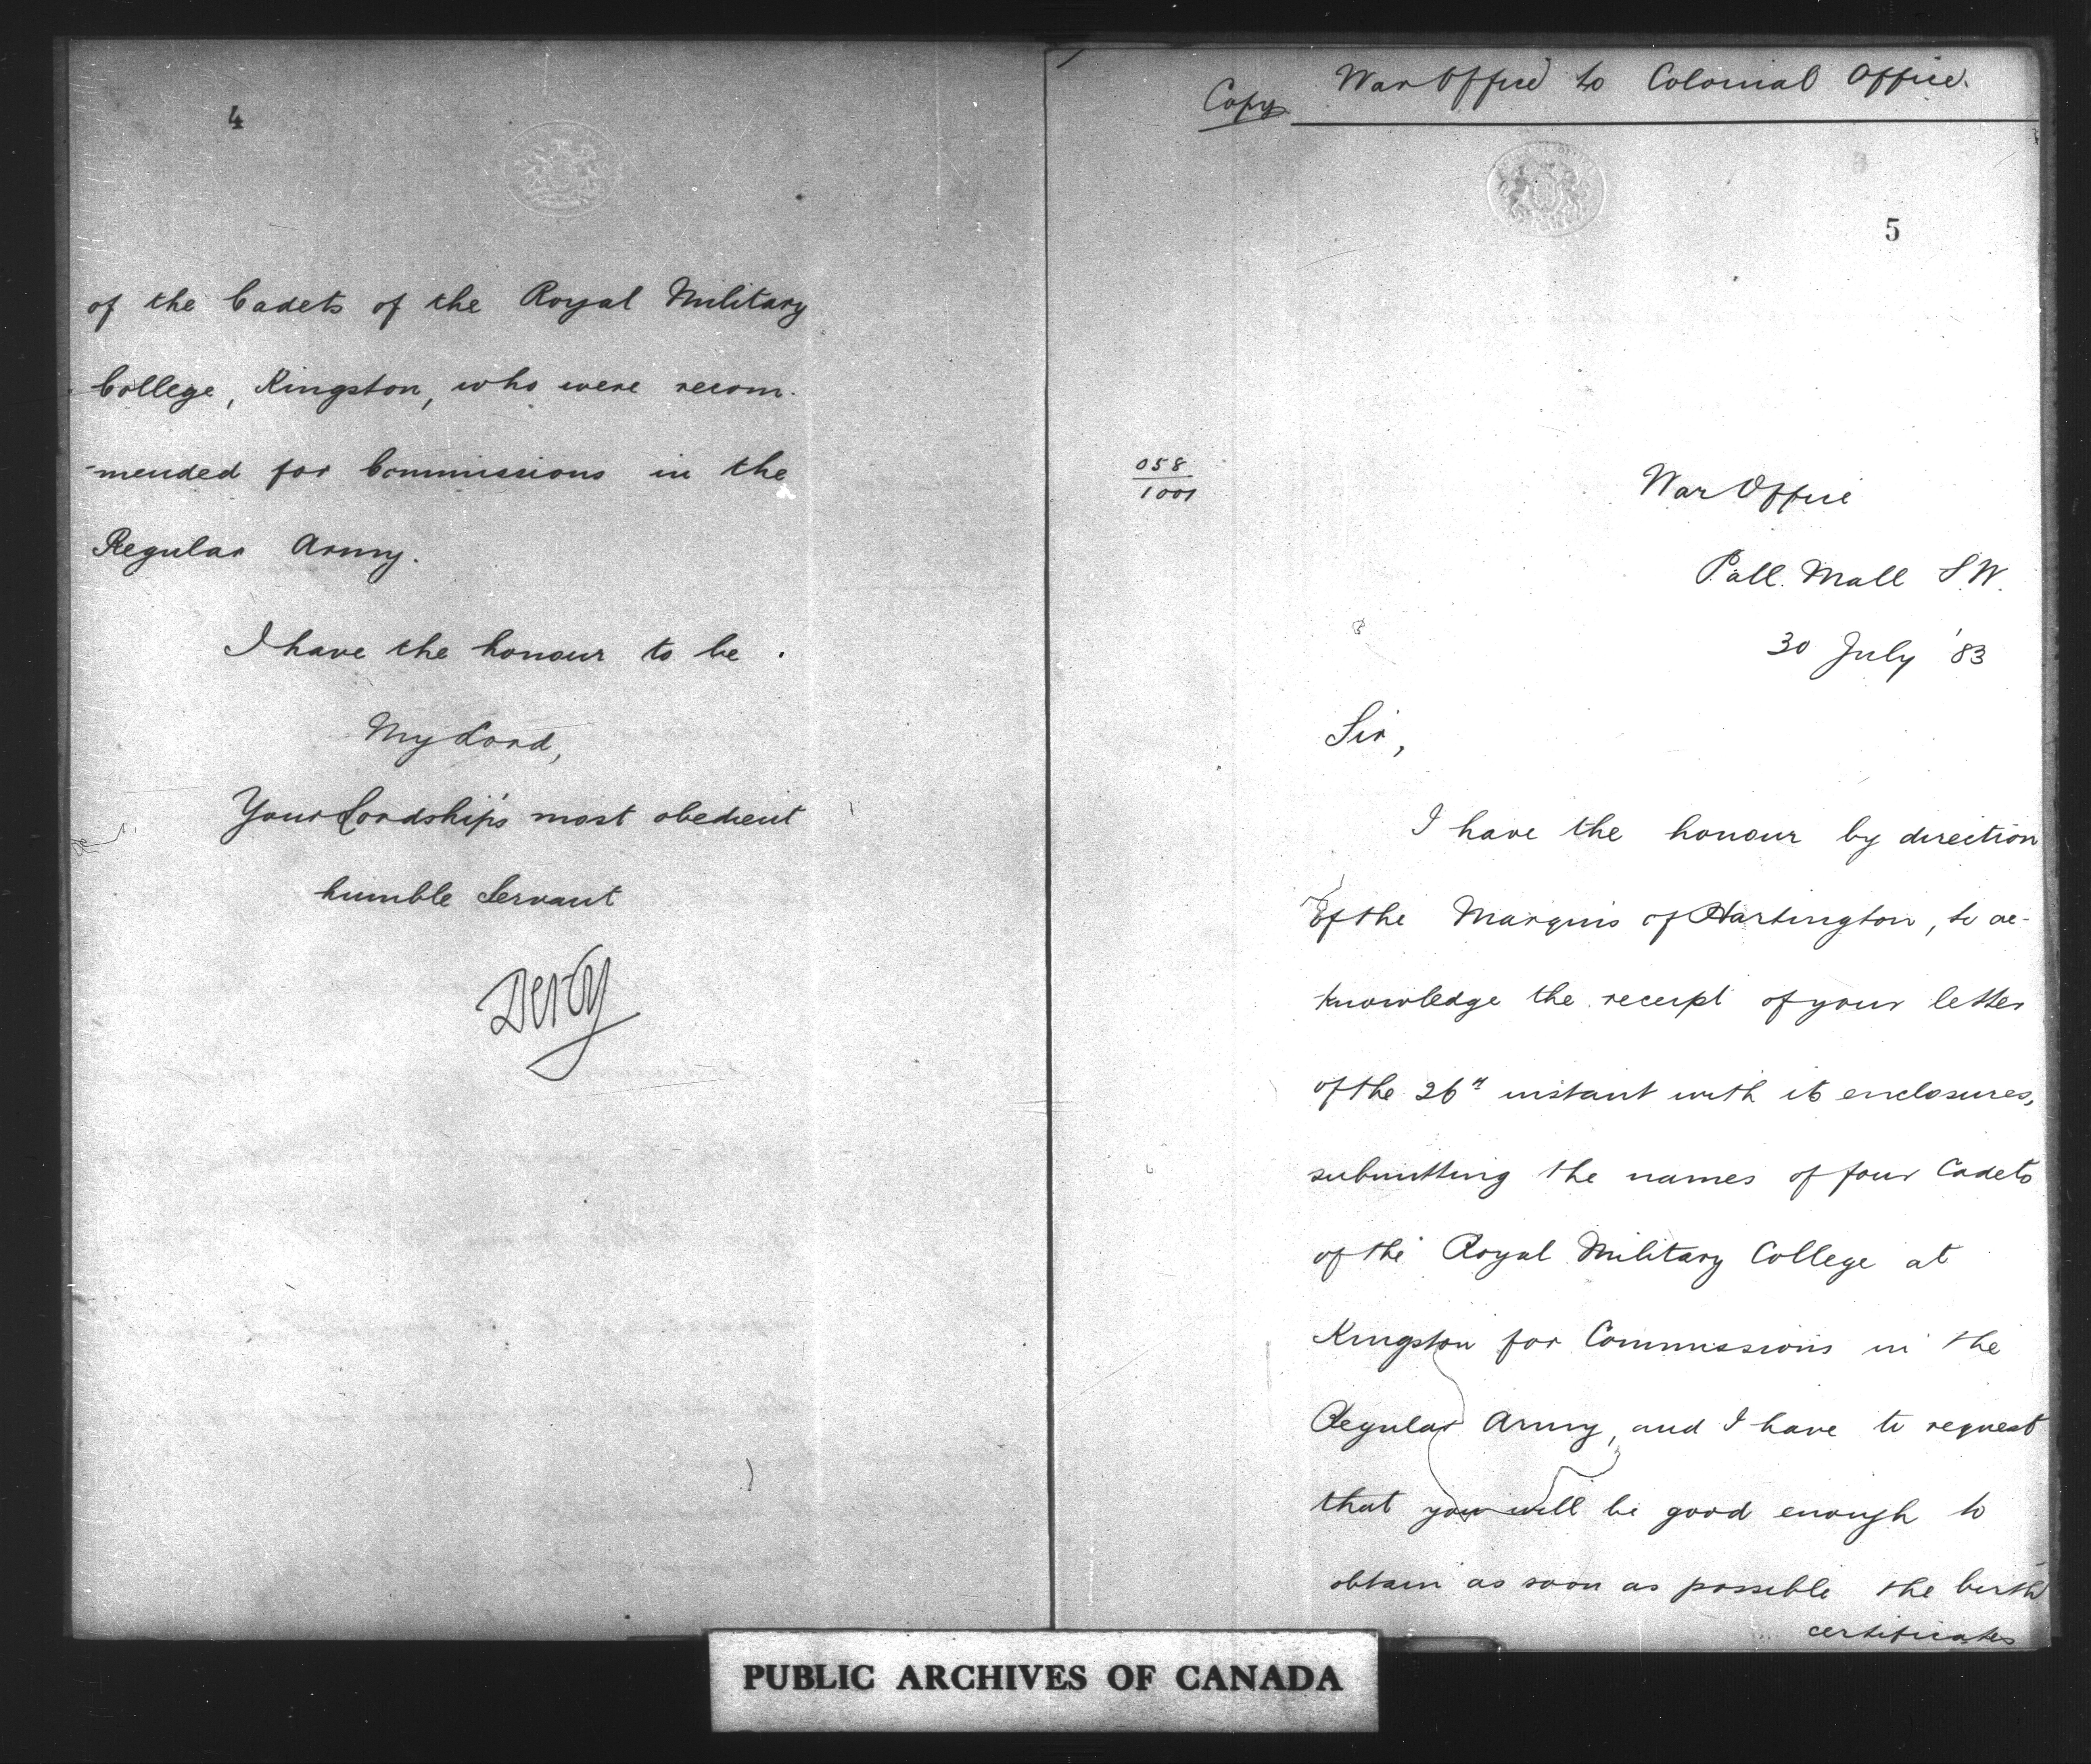 4
of the Cadets of the Royal Military
College, Kingston, who were recom-
-mended for Commissions in the
Regular Army.
I have the honour to be
My Lord,
Your Lordship's most obedient
humble Servant
Derby
Copy War Office to Colonial Office.
5
058
1001
War Office
Pall Mall S.W.
30 July '83
Sir,
I have the honour by direction
of the Marquis of Hartington, to ac-
knowledge the receipt of your letter
of the 26th instant with its enclosures,
submitting the names of four Cadets
of the Royal Military College at
Kingston for Commissions in the
Regular Army, and I have to request
that you will be good enough to
obtain as soon as possible the birth
certificates
PUBLIC ARCHIVES OF CANADA